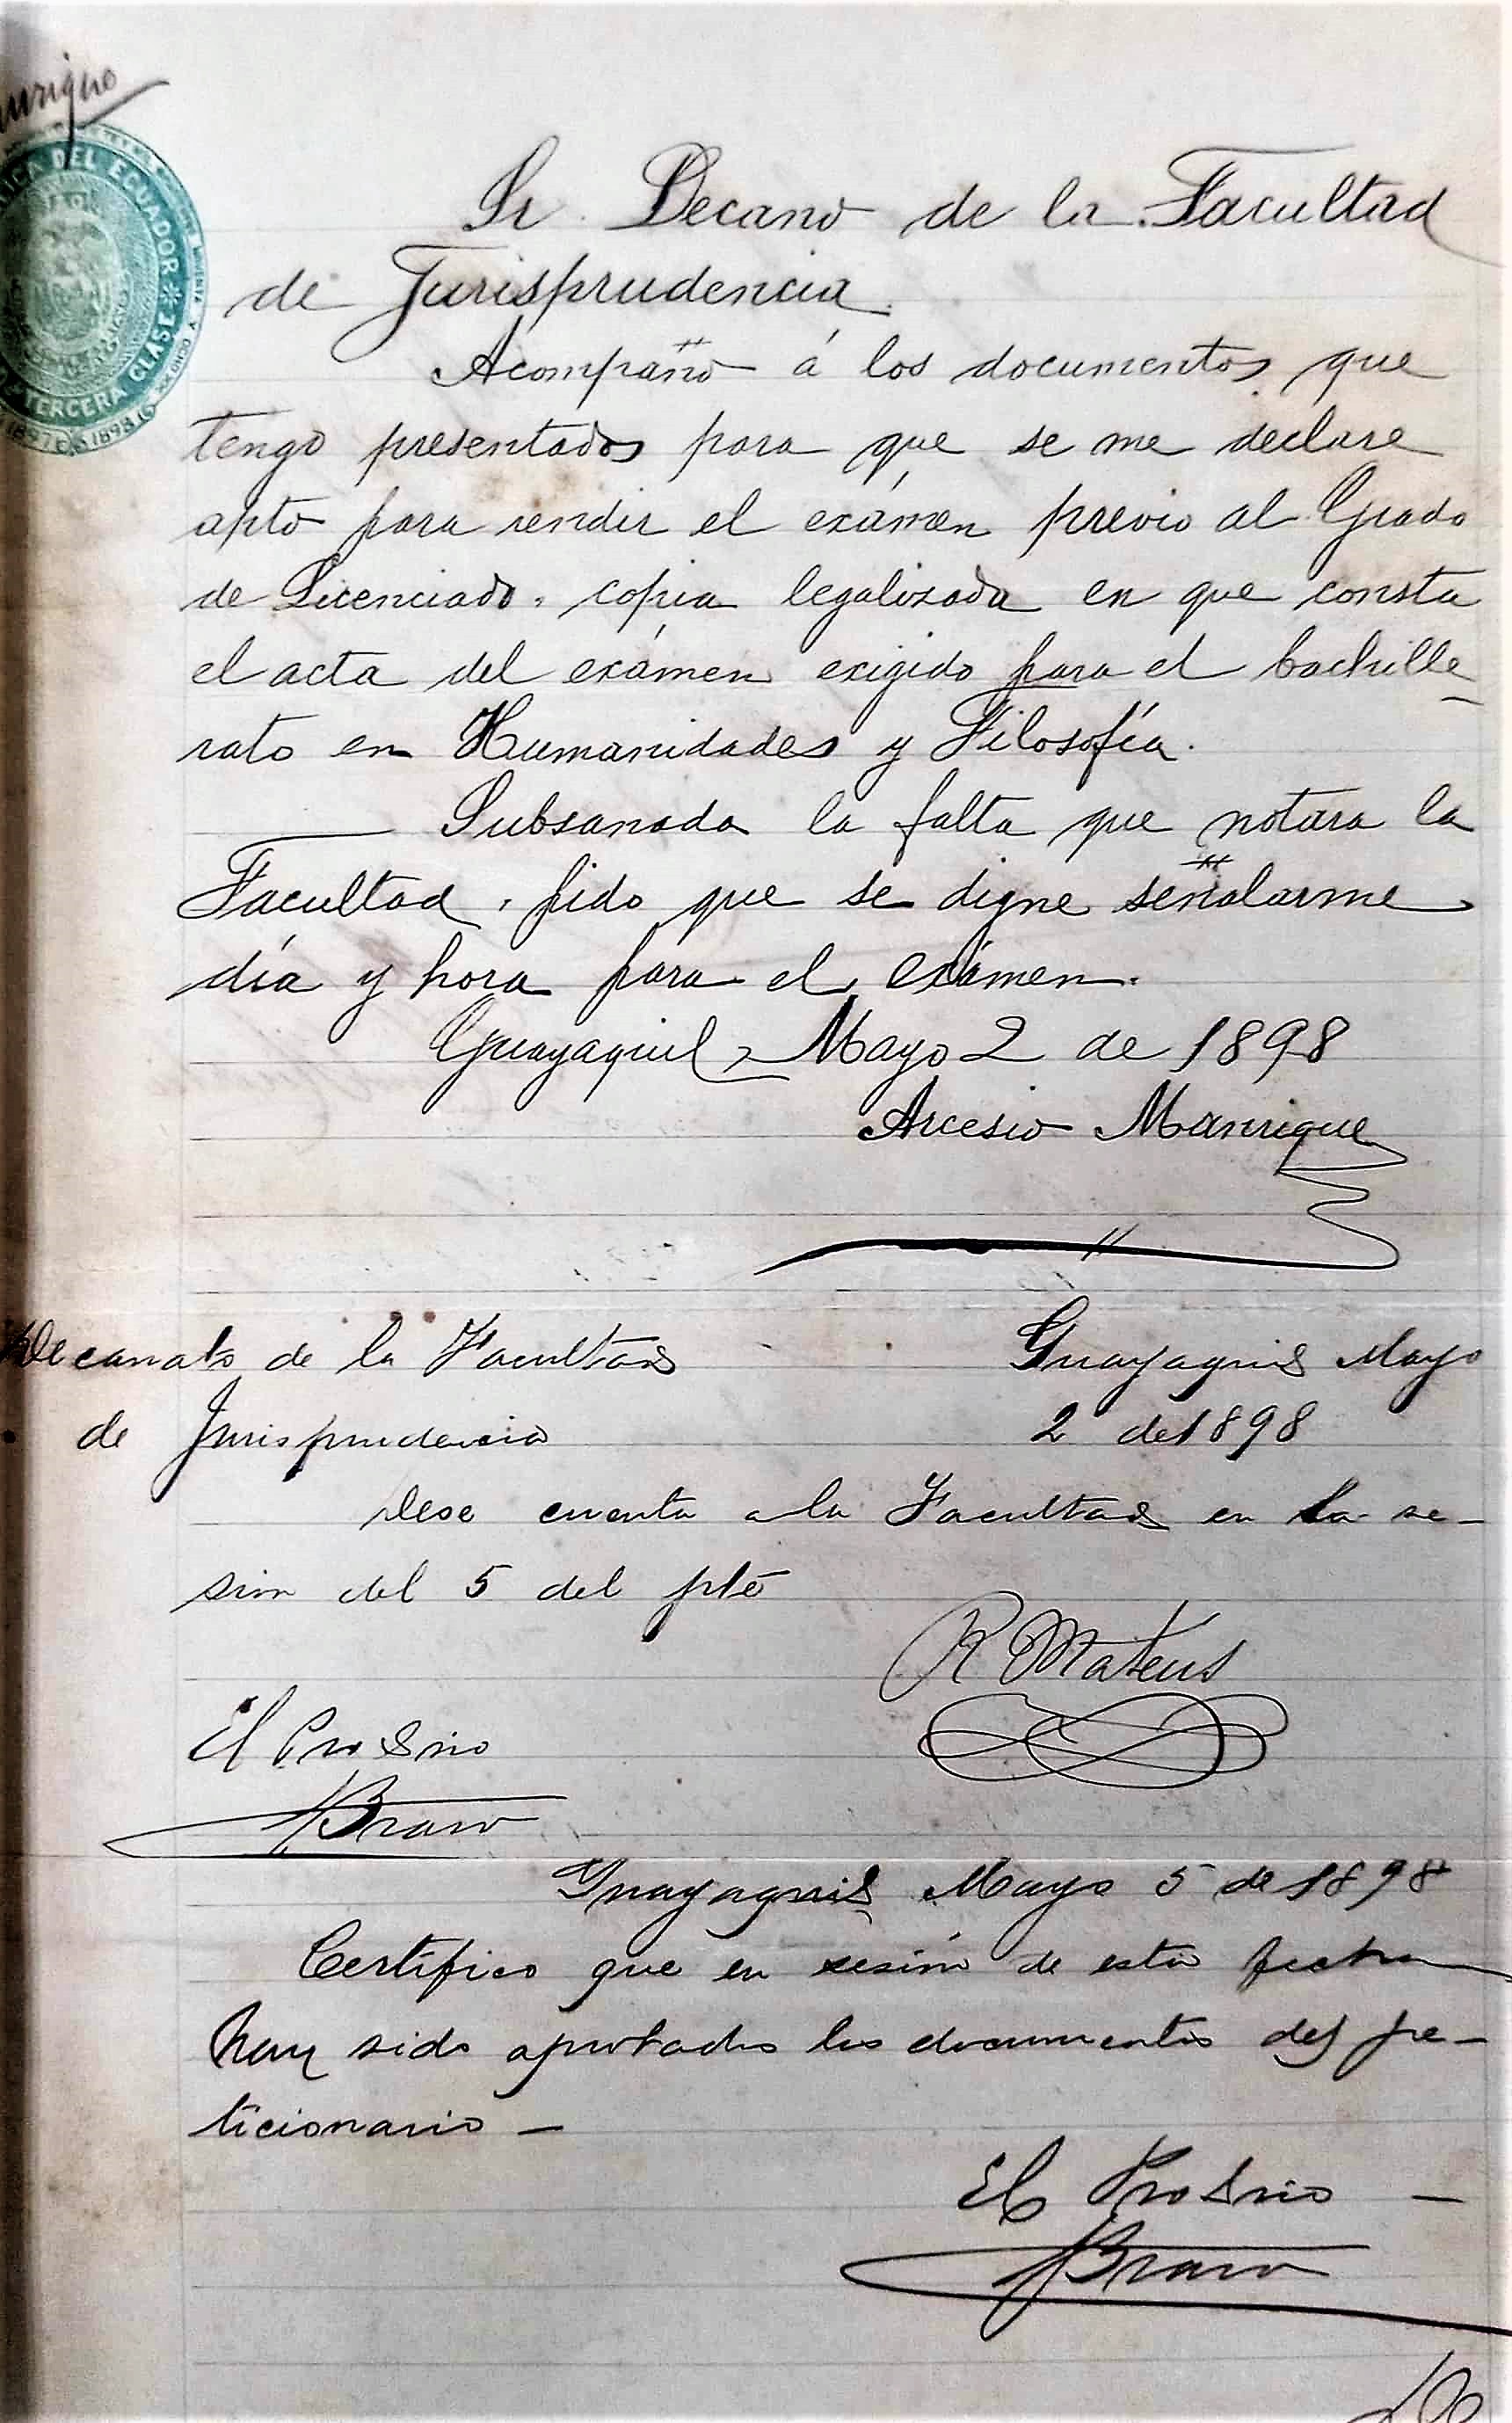 Sr. Decano de la Facultad
de Jurisprudencia.
Acompaño á los documentos que
tengo presentados para que se me declare
apto para rendir el exámen previo al Grado
de Licenciado, copia legalizada en que consta
el acta del exámen exigido para el bachille
rato en Humanidades y Filosofía.
Subsanada la falta que notara la
Facultad, pido que se digne señalarme
día y hora para el exámen.
Guayaquil, Mayo 2 de 1898
Arcesio Manrique
Decanato de la Facultad
de Jurisprudencia
Guayaquil Mayo
2 de 1898
Dese cuenta a la Facultad en la se-
sion del 5 del pte
R Mateus
El Pro Srio
Bravo
Guayaquil Mayo 5 de 1898
Certifico que en sesión de esta fecha
han sido aprobados los documentos del pe-
ticionario -
El Pro Srio -
Bravo
DEL ECUADOR
TERCERA CLASE